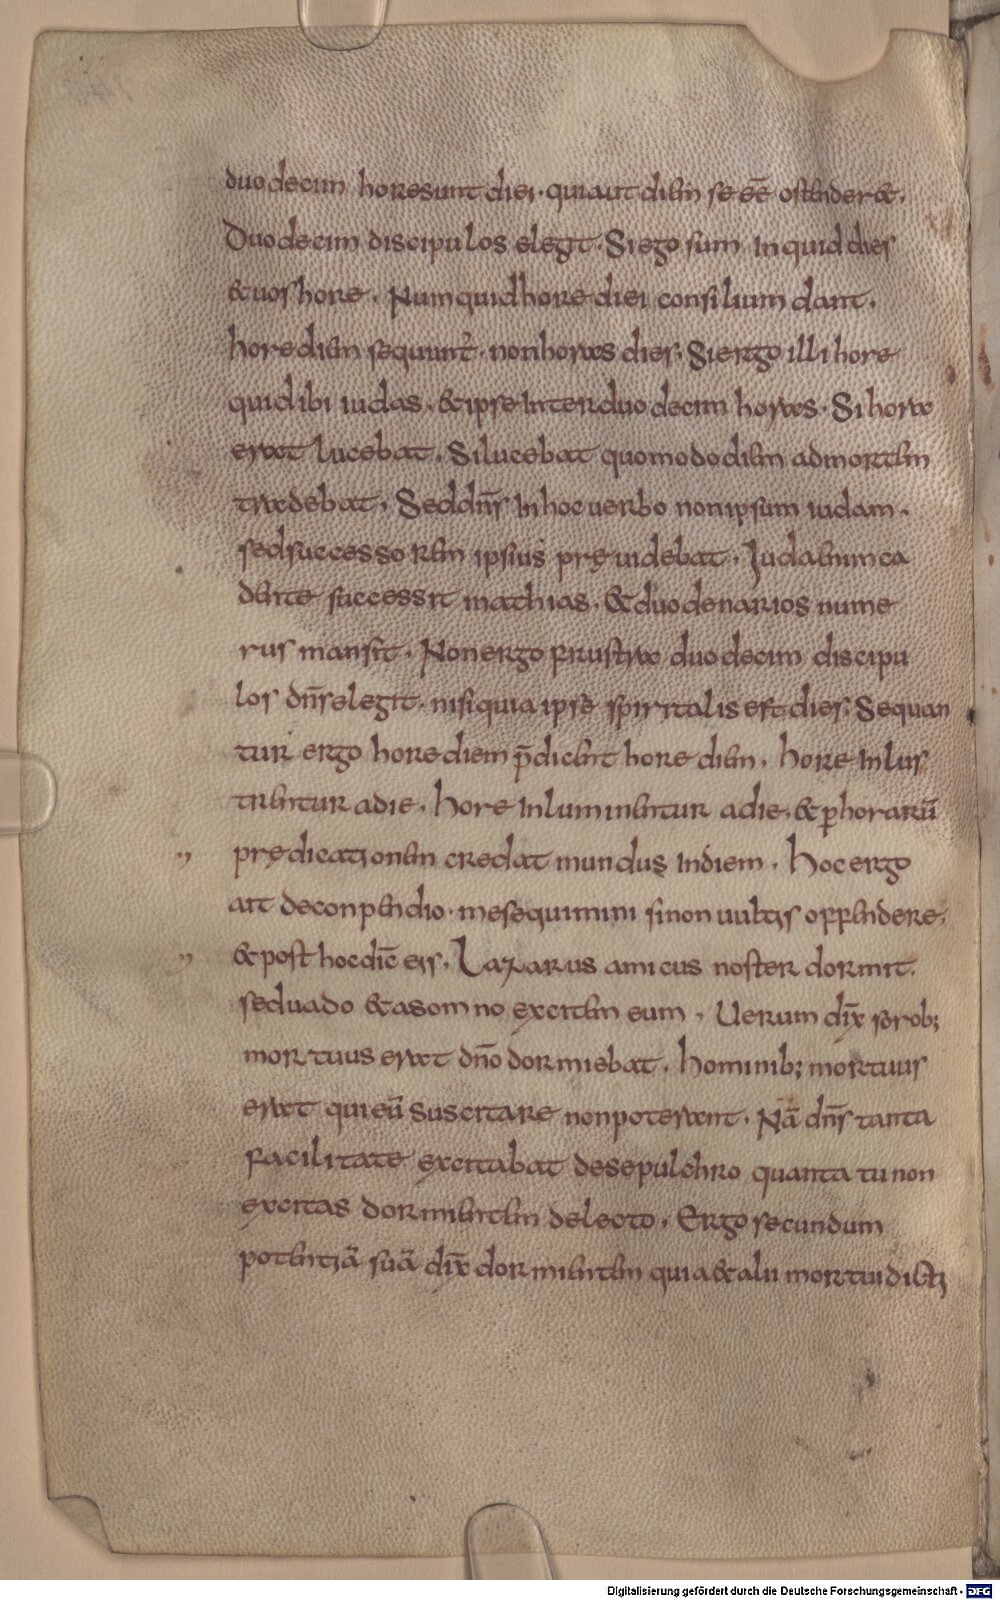 duodecim hore sunt diei · qui aut diem se eē ostender&.
Duodecim discipulos elegit · Si ego sum inquid dies
& uos hore . Numquid hore diei consilium dant .
hore diem sequunt̄ · non horas dies · Si ergo illi hore
quid ibi iudas . & ipse inter duodecim horas · Si hora
erat lucebat . Si lucebat quomodo diem ad mortem
tradebat . Sed dn̄s in hoc uerbo non ipsum iudam .
sed successorem ipsius pręuidebat . Iuda enim ca
dente successit mathias . & duodenarios nume
rus mansit . Non ergo frustra duodecim discipu
los dn̄s elegit · nisi quia ipse spiritalis est dies · Sequan
tur ergo hore diem p̄dicent hore diem . Hore inlus
trentur a die . hore inluminentur a die . & ꝑ horarū
prędicationem credat mundus in diem . Hoc ergo
ait deconpendio · me sequimini si non uultis offendere .
& post hoc dic̄ eis . Lazarus amicus noster dormit .
sed uado & a somno excitem eum . Uerum dix̄ sorob;
mortuus erat dn̄o dormiebat . hominib; mortuus
erat qui eū suscitare non poterant . Nā dn̄s tanta
facilitate excitabat de sepulchro quanta tu non
excitas dormientem de lecto . Ergo secundum
potentiā suā dix̄ dormientem quia & alii mortui dicti